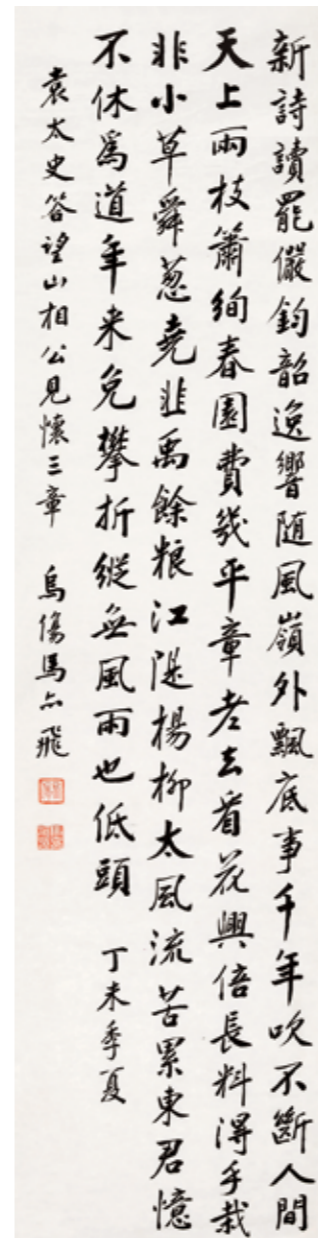 新詩讀罷儼鈞韶逸響随風嶺外飄底事千年吹不斷人間
天上兩枝簫絢春園費幾平章老去看花興倍長料得手栽
非小草舜葱堯韭禹餘粮江隄楊柳太風流苦累東君憶
不休爲道年来免攀折縱無風雨也低頭 丁未季夏
袁太史答望山相公見懷三章 烏傷馬亦飛